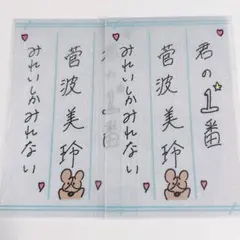 君の1番
菅波美玲
みれいしかみれない
菅波美玲
みれいしかみれない